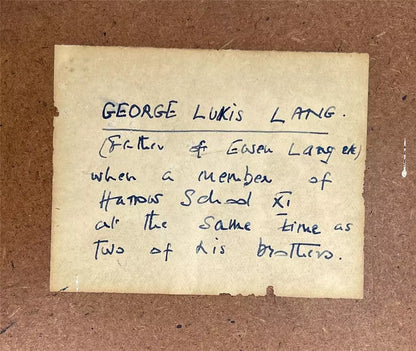 GEORGE LUKIS LANG.
(Father of Ewen Lang etc)
when a member of
Harrow School XI
at the same time as
two of his brothers.